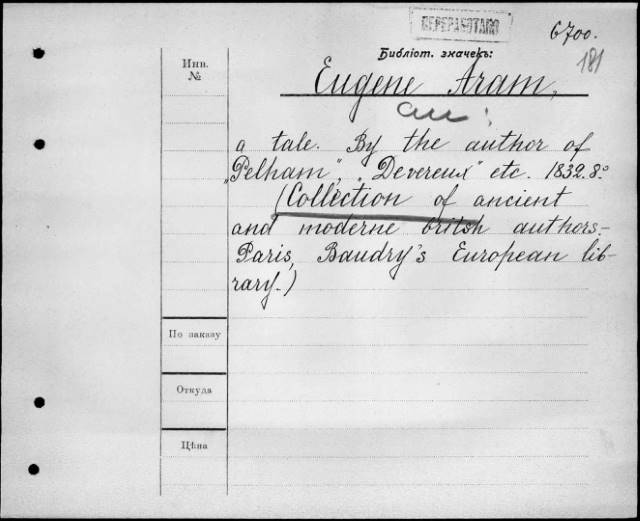 ПЕРЕРАБОТАНО
6700.
181
Библіот. значекъ:
Инв.
№
Eugene Aram,
a tale. By the author of
„Pelham", „Devereux" etc. 1832. 8.°
(Collection of ancient
and moderne british authors.–
Paris, Baudry's European lib-
rary.)
По заказу
Откуда
Цѣна